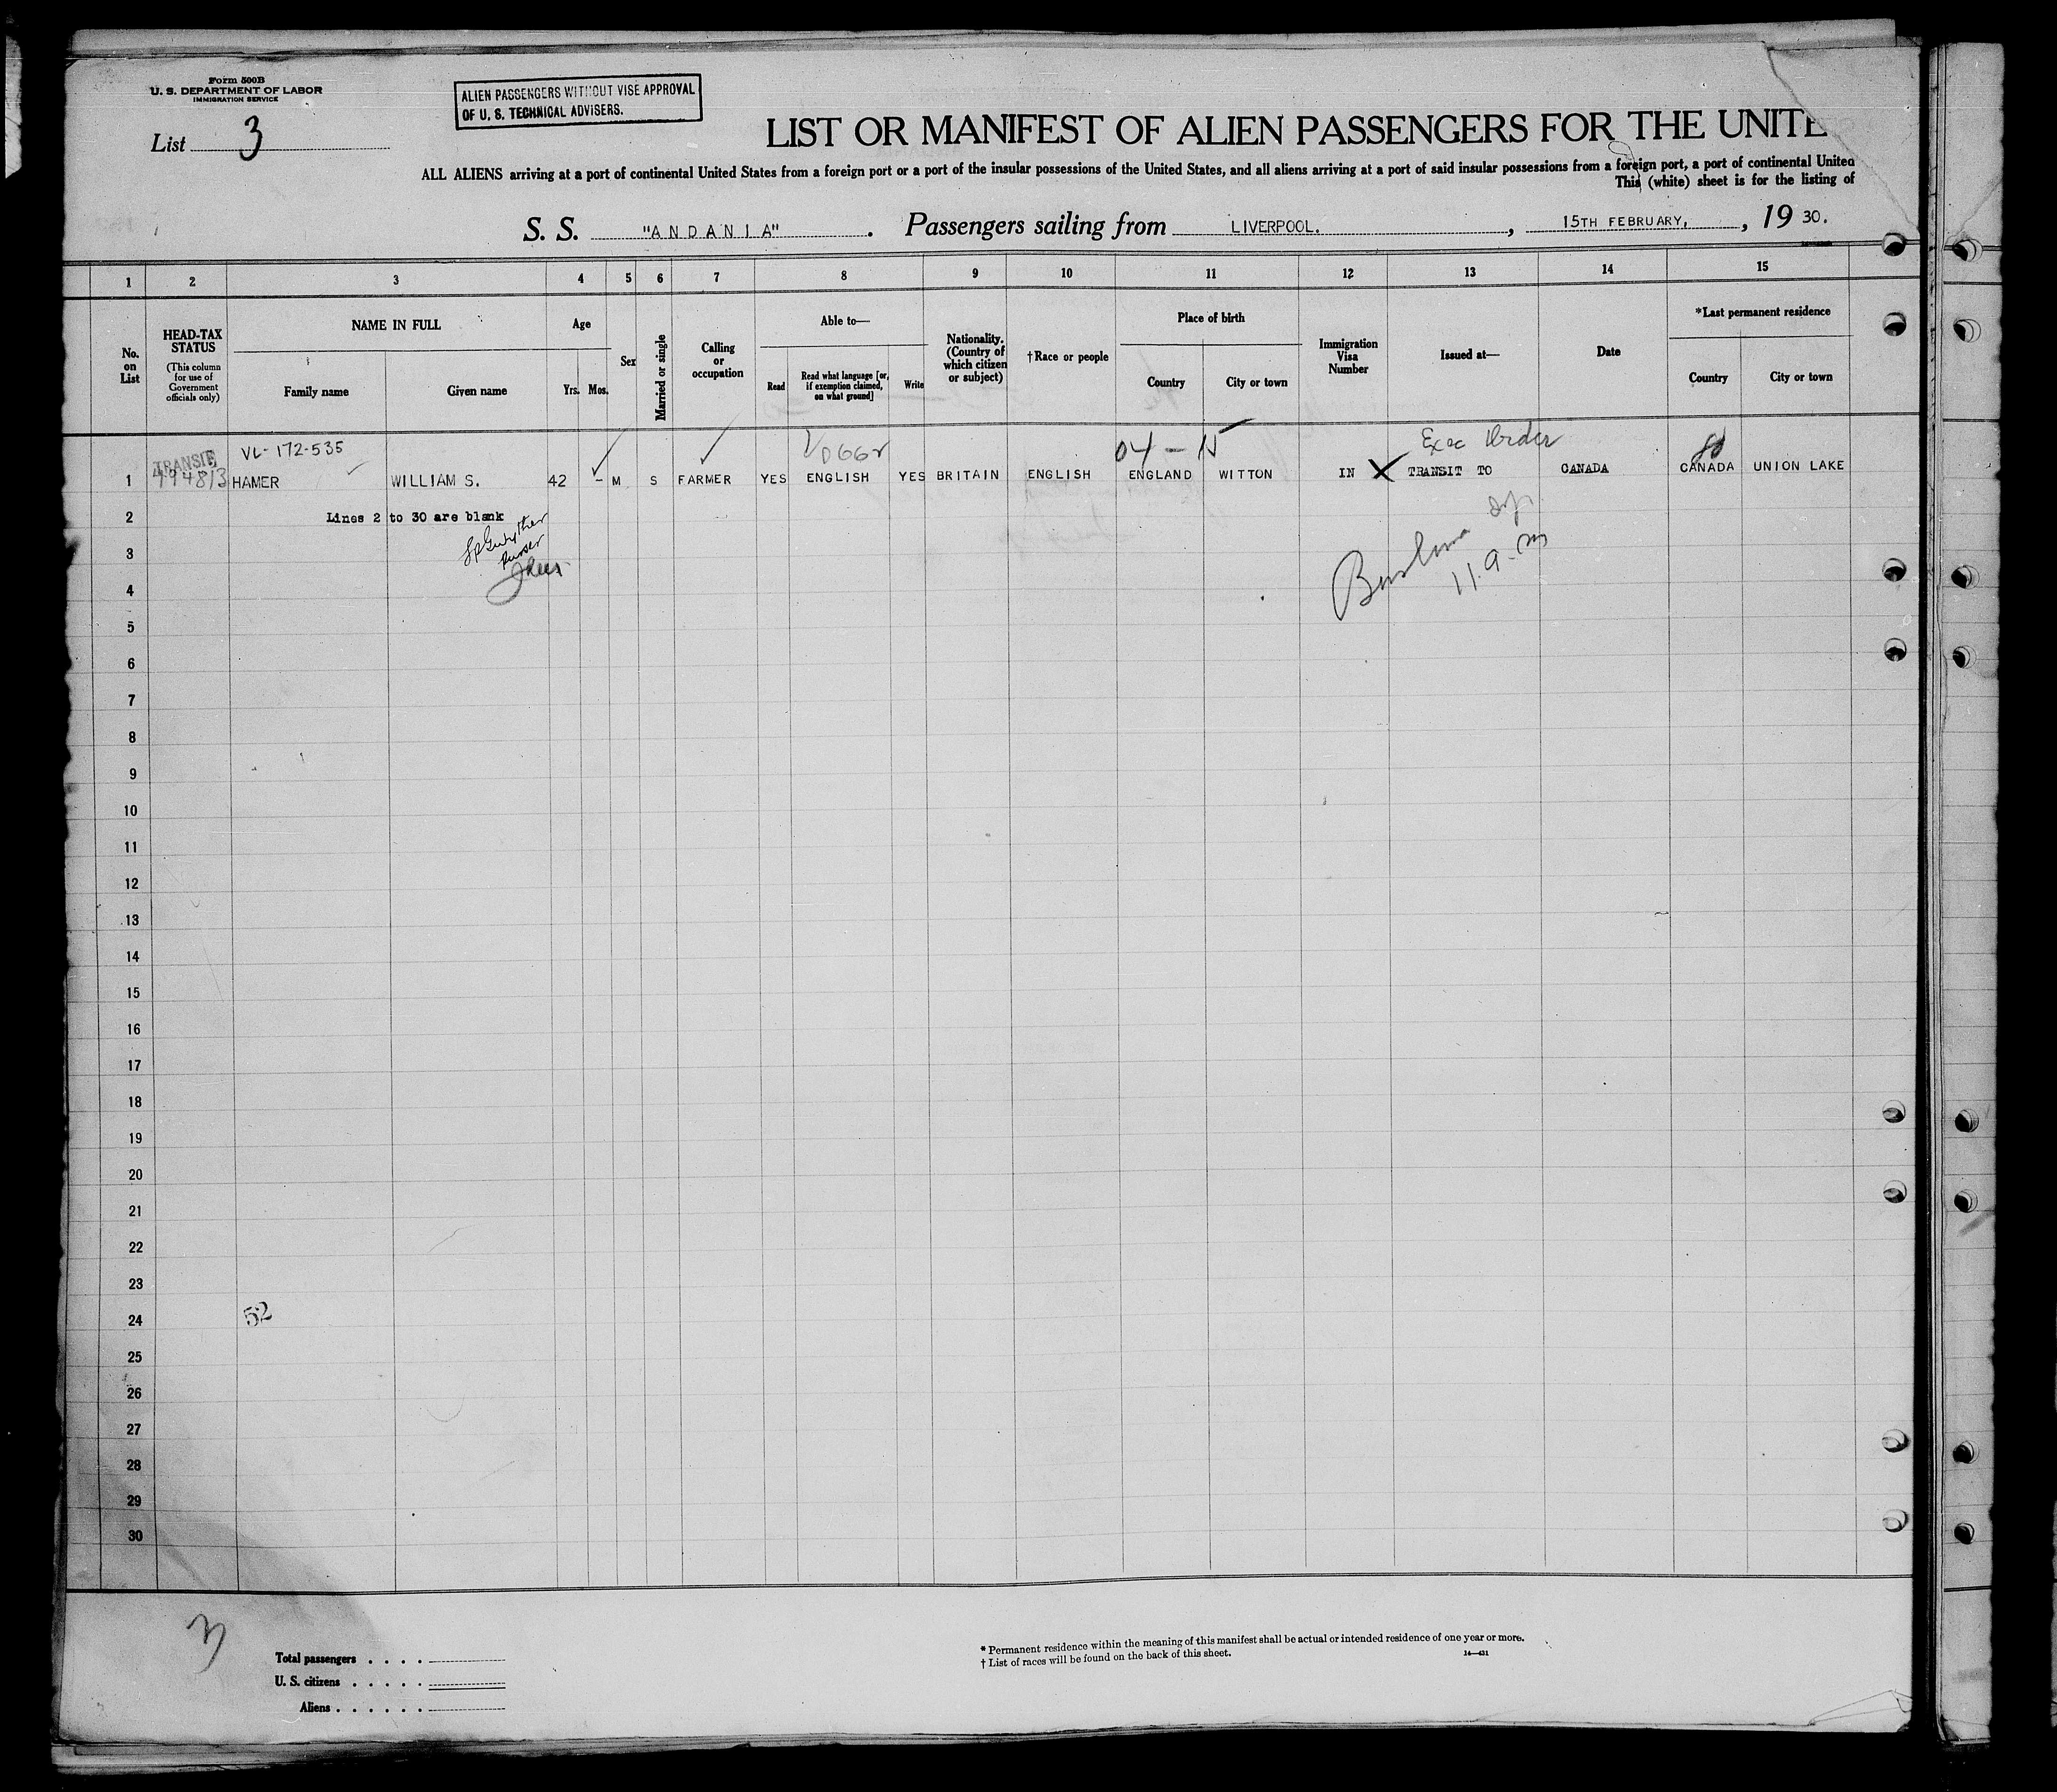 Form 500B
U. S. DEPARTMENT OF LABOR
IMMIGRATION SERVICE
ALIEN PASSENGERS WITHOUT VISE APPROVAL
OF U. S. TECHNICAL ADVISERS.
List 3
LIST OR MANIFEST OF ALIEN PASSENGERS FOR THE UNITE
ALL ALIENS arriving at a port of continental United States from a foreign port or a port of the insular possessions of the United States, and all aliens arriving at a port of said insular possessions from a foreign port, a port of continental United
This (white) sheet is for the listing of
S. S. "ANDANIA". Passengers sailing from LIVERPOOL., 15TH FEBRUARY, , 19 30.
1 2 3 4 5 6 7 8 9 10 11 12 13 14 15
No. on List
HEAD-TAX STATUS
(This column for use of Government officials only)
NAME IN FULL
Family name Given name
Age
Yrs. Mos.
Sex
Married or single
Calling or occupation
Able to—
Read
Read what language [or, if exemption claimed, on what ground]
Write
Nationality. (Country of which citizen or subject)
†Race or people
Place of birth
Country City or town
Immigration Visa Number
Issued at—
Date
*Last permanent residence
Country City or town
VL-172-535 04-15 Exec Order
TRANSIT
1 HAMER WILLIAM S. 42 - M S FARMER YES ENGLISH YES BRITAIN ENGLISH ENGLAND WITTON IN X TRANSIT TO CANADA CANADA UNION LAKE
2 Lines 2 to 30 are blank
Purser
3
4
11.a.m
5
6
7
8
9
10
11
12
13
14
15
16
17
18
19
20
21
22
23
24 52
25
26
27
28
29
30
3
Total passengers . . . .
U. S. citizens . . . . .
Aliens . . . . . .
* Permanent residence within the meaning of this manifest shall be actual or intended residence of one year or more.
† List of races will be found on the back of this sheet.
14—431